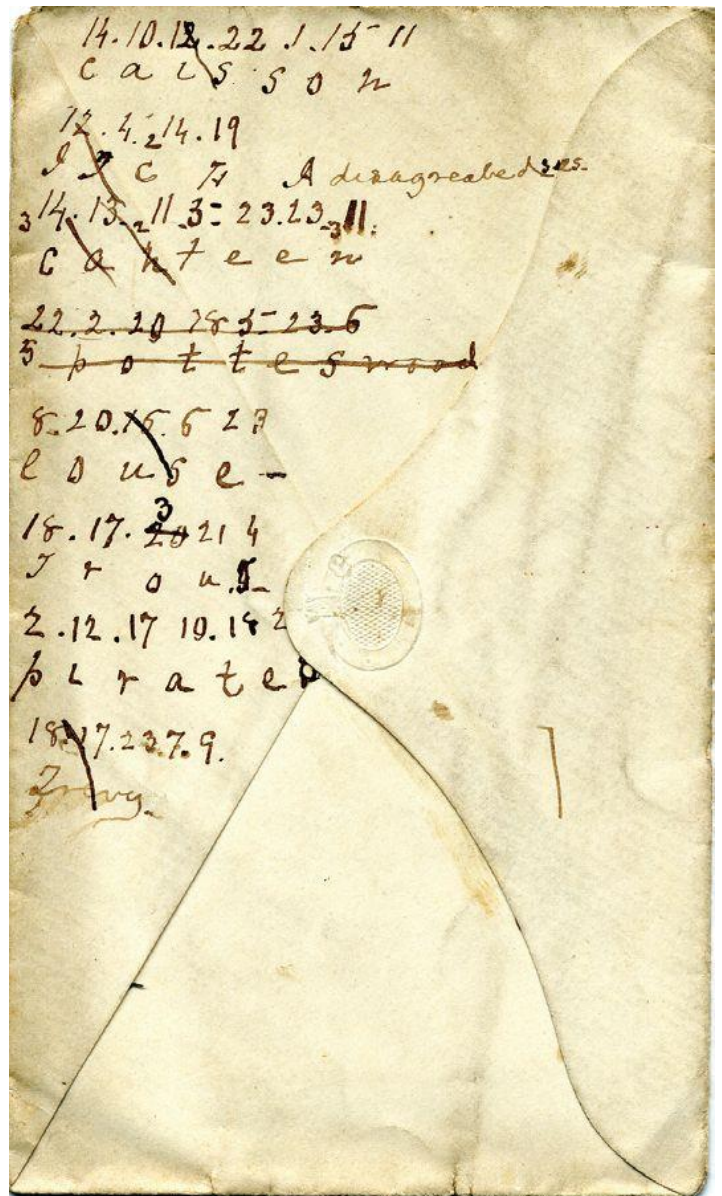 14.10.12.22.1.15 11
C a i s s o n
12.4.2 14.19
I C H A disagreabe
3 14.13.2 11.3- 23.23.3 11.
C a n t e e n
22.2.20 18 5- 23.6
S p o t t e s wood
8.20.15.6 23
l o u s e -
3
18.17.20 21 4
T r o u
2.12.17 10.18 2
p i r a t e
18.17.23.7.9.